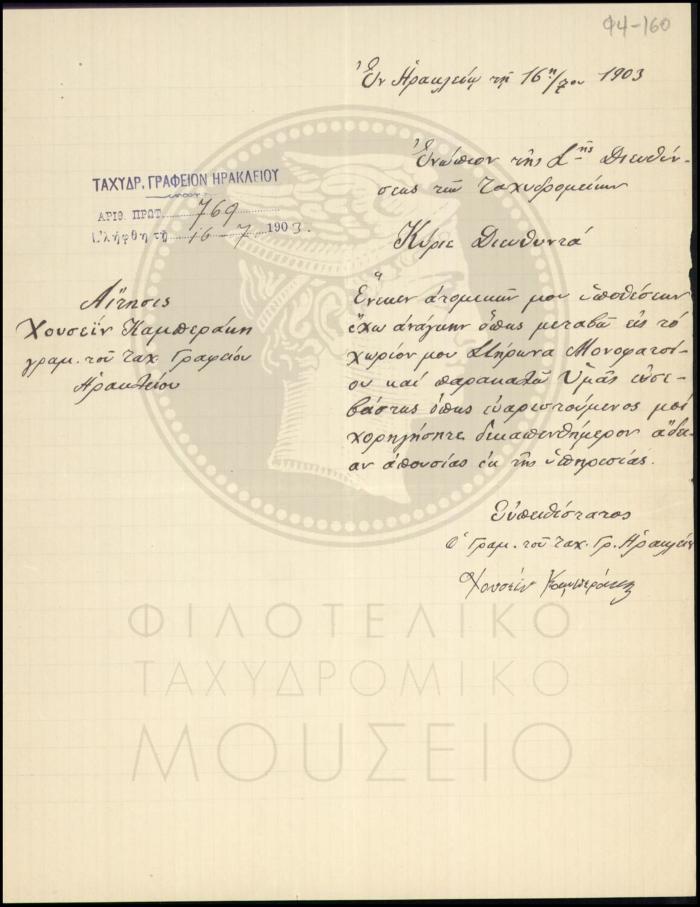 Φ4-160
Ἐν Ἡρακλείῳ τῇ 16ῃ/7ου 1903
Ἐνώπιον τῆς Σ^τῆς Διευθύν-
σεως τῶν Ταχυδρομείων
ΤΑΧΥΔΡ. ΓΡΑΦΕΙΟΝ ΗΡΑΚΛΕΙΟΥ
ΑΡΙΘ. ΠΡΩΤ. 769
Ἐλήφθη τῇ 16-7- 1903.
Κύριε Διευθυντά
Αἴτησις
Χουσεῒν Καμπεράκη
γραμ. τοῦ ταχ. Γραφείου
Ἡρακλείου
Ἕνεκεν ἀτομικῶν μου ὑποθέσεων
ἔχω ἀνάγκην ὅπως μεταβῶ εἰς τό
χωρίον μου Στήρωνα Μονοφατσί-
ου καί παρακαλῶ Ὑμᾶς εὐσε-
βάστως ὅπως εὐαρεστούμενος μοί
χορηγήσητε δεκαπενθήμερον ἄδει-
αν ἀπουσίας ἐκ τῆς ὑπηρεσίας.
Εὐπειθέστατος
ὁ Γραμ. τοῦ ταχ. Γρ. Ἡρακλείου
Χουσεῒν Καμπεράκης
ΦΙΛΟΤΕΛΙΚΟ
ΤΑΧΥΔΡΟΜΙΚΟ
ΜΟΥΣΕΙΟ